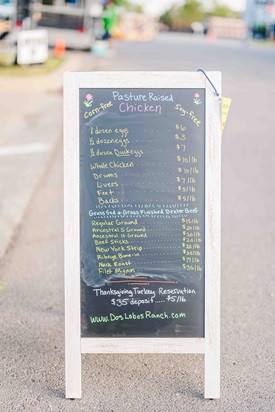 Pasture Raised
Chicken
Corn-free
Soy-Free
1 dozen eggs $6
½ dozen eggs $3
½ dozen Duck eggs $7
Whole Chicken
Drums
Livers
Feet
Backs
Grass Fed & Grass Finished Dexter Beef
Regular Ground
Ancestral 5 Ground
Ancestral 10 Ground
Beef Sticks
New York Strip
Ribeye Bone-in
Neck Roast
Filet Mignon
Thanksgiving Turkey Reservation
$35 deposit..... $5/lb
www.DosLobosRanch.com